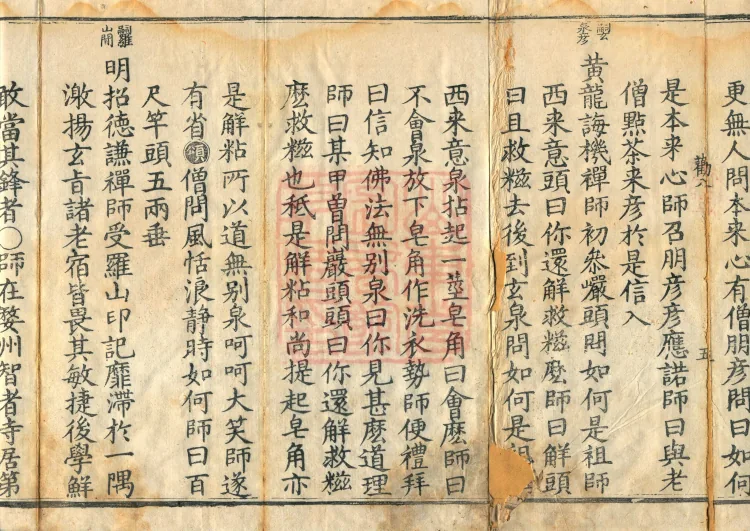 更無人問本来心有僧朋彦問曰如何
是本来心師召朋彦彦應諾師曰與老
僧㸃茶来彦於是信入
勸八
五
黄龍誨機禪師初叅巖頭問如何是祖師
西来意頭曰你還解救糍麽師曰解頭
曰且救糍去後到玄泉問如何是祖
西来意泉拈起一莖皂角曰會麽師曰
不會泉放下皂角作洗衣勢師便禮拜
曰信知佛法無别泉曰你見甚麽道理
師曰某甲曽問巖頭頭曰你還解救糍
麽救糍也秪是解粘和尚提起皂角亦
是解粘所以道無别泉呵呵大笑師遂
有省頌僧問風恬浪靜時如何師曰百
尺竿頭五兩垂
羅山閒
明招德謙禪師受羅山印記靡滯於一隅
激揚玄旨諸老宿皆畏其敏捷後學鮮
敢當其鋒者〇師在婺州智者寺居第